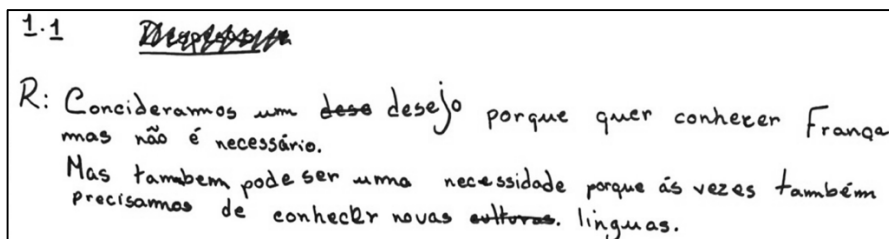 1.1
R: Concideramos um desejo porque quer conhecer França
mas não é necessário.
Mas tambem pode ser uma necessidade porque ás vezes também
precisamos de conhecer novas culturas. linguas.